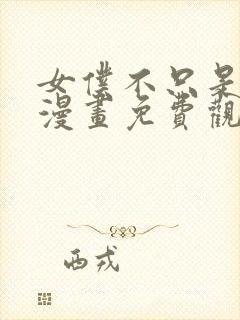 女僕不只是
漫畫免費觀
西戎